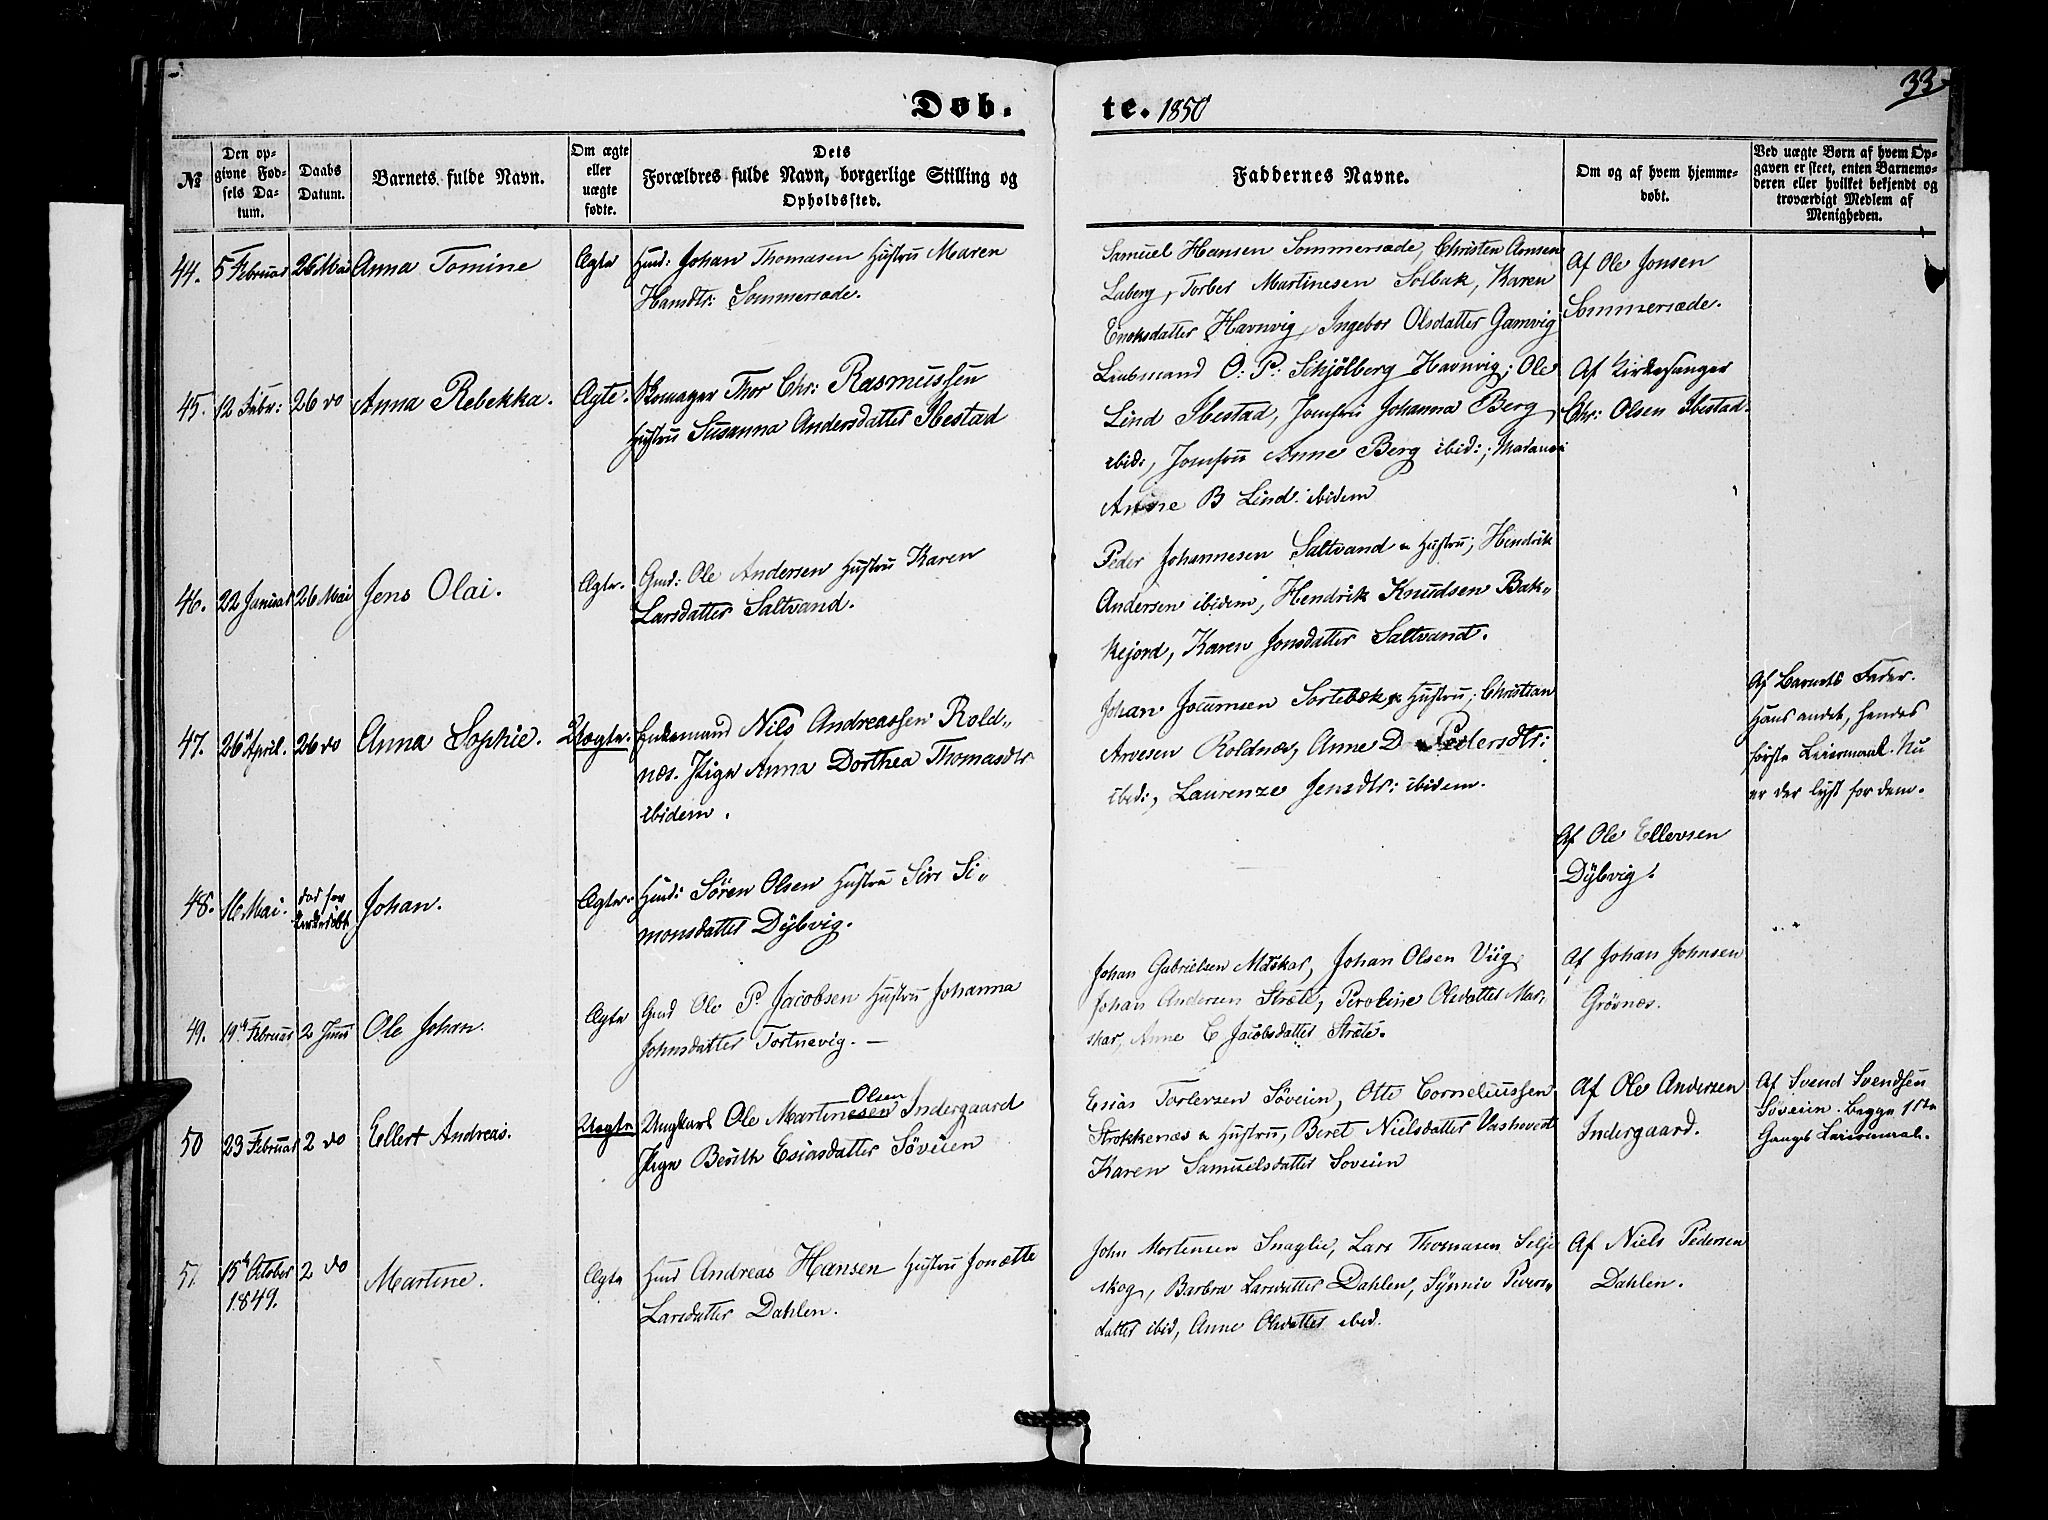 33
Døb. te. 1850
№
Den opgivne Fødsels Datum.
Daabs Datum.
Barnets fulde Navn.
Om ægte eller uægte fødte.
Dets Forældres fulde Navn, borgerlige Stilling og Opholdssted.
Faddernes Navne.
Om og af hvem hjemmedøbt.
Ved uægte Børn af hvem Opgaven er skeet, enten Barnemoderen eller hvilket bekjendt og troværdigt Medlem af Menigheden.
44. 5 Februar 26 Mai Anna Tomine Ægte Huus: Johan Thomasen Hustru Maren
Hansdtr: Sommersæde.
Samuel Hansen Sommersæde, Christen Arnsen
Laberg, Torber Martinesen Solbak, Karen
Enoksdatter Havnvig, Ingebor Olsdatter Gamvig
Af Ole Jonsen
Sommersæde.
45. 12 Febr: 26 do Anna Rebekka. Ægte. Skomager Thor Chr: Rasmussen
Hustru Susanna Andersdatter Ibestad
Leubmand O: P: Schjölberg Havnvig; Ole
Lind Ibestad, Jomfru Johanna Berg,
ibid:, Jomfru Anne Berg ibid:; Madame
Anne B Lind: ibidem
Af Kirkesanger
Chr: Olsen Ibestad.
46. 22 Januar 26 Mai Jens Olai. Ægte. Gmd: Ole Andersen Hustru Karen
Larsdatter Saltvand.
Peder Johannesen Saltvand & Hustru; Hendrik
Andersen ibidem, Hendrik Knudsen Bak-
kejord, Karen Jonsdatter Saltvand.
47. 26 April. 26 do Anna Sophie. Uægte. Enkemand Nils Andreassen Rold-
næs. Pige Anna Dorthea Thomasdtr
ibidem.
Johan Jocumsen Sortebæk & Hustru; Christian
Arvesen Roldnæs, Anne D Pedersdtr:
ibid:, Laurenze Jensdtr: ibidem.
Af Barnets Fader.
Hans andet, hendes
første Leiermaal. Nu
er der lyst for dem.
48. 16 Mai. død før Johan. Ægte. Huus: Sören Olsen Hustru Siri Si-
monsdatter Dybvig.
Af Ole Ellevsen
Dybvig.
49. 19 Februar 2 Juni Ole Johan. Ægte Gmd Ole P. Jacobsen Hustru Johanna
Johnsdatter Tortnevig. —
Johan Gabrielsen Maskar, Johan Olsen Viig,
Johan Andersen Stræte, Peroline Olsdatter Mas-
skar, Anne C Jacobsdatter Stræte.
Af Johan Johnsen
Grövnæs.
50 23 Februar 2 do Ellert Andreas. Uægte Ungkarl Ole Martinesen Olsen Indergaard
Pige Berith Esiasdatter Söveien
Esias Torlersen Söveien, Otte Corneliussen
Strokkenæs & Hustru, Beret Nielsdatter
Karen Samuelsdatter Soveien
Af Ole Andersen
Indergaard.
Af Svend Svendsen
Söveien. begge 1ste
Gangs Leiermaal.
51 15 October 2 do
1849.
Martine. Ægte Huus Andreas Hansen Hustru Jonætte
Larsdatter Dahlen.
John Mortensen Snaglie, Lars Thomasen Selje
skog, Barbra Larsdatter Dahlen, Synniv Peders-
datter ibid, Anne Olsdatter ibid.
Af Niels Pedersen
Dahlen.